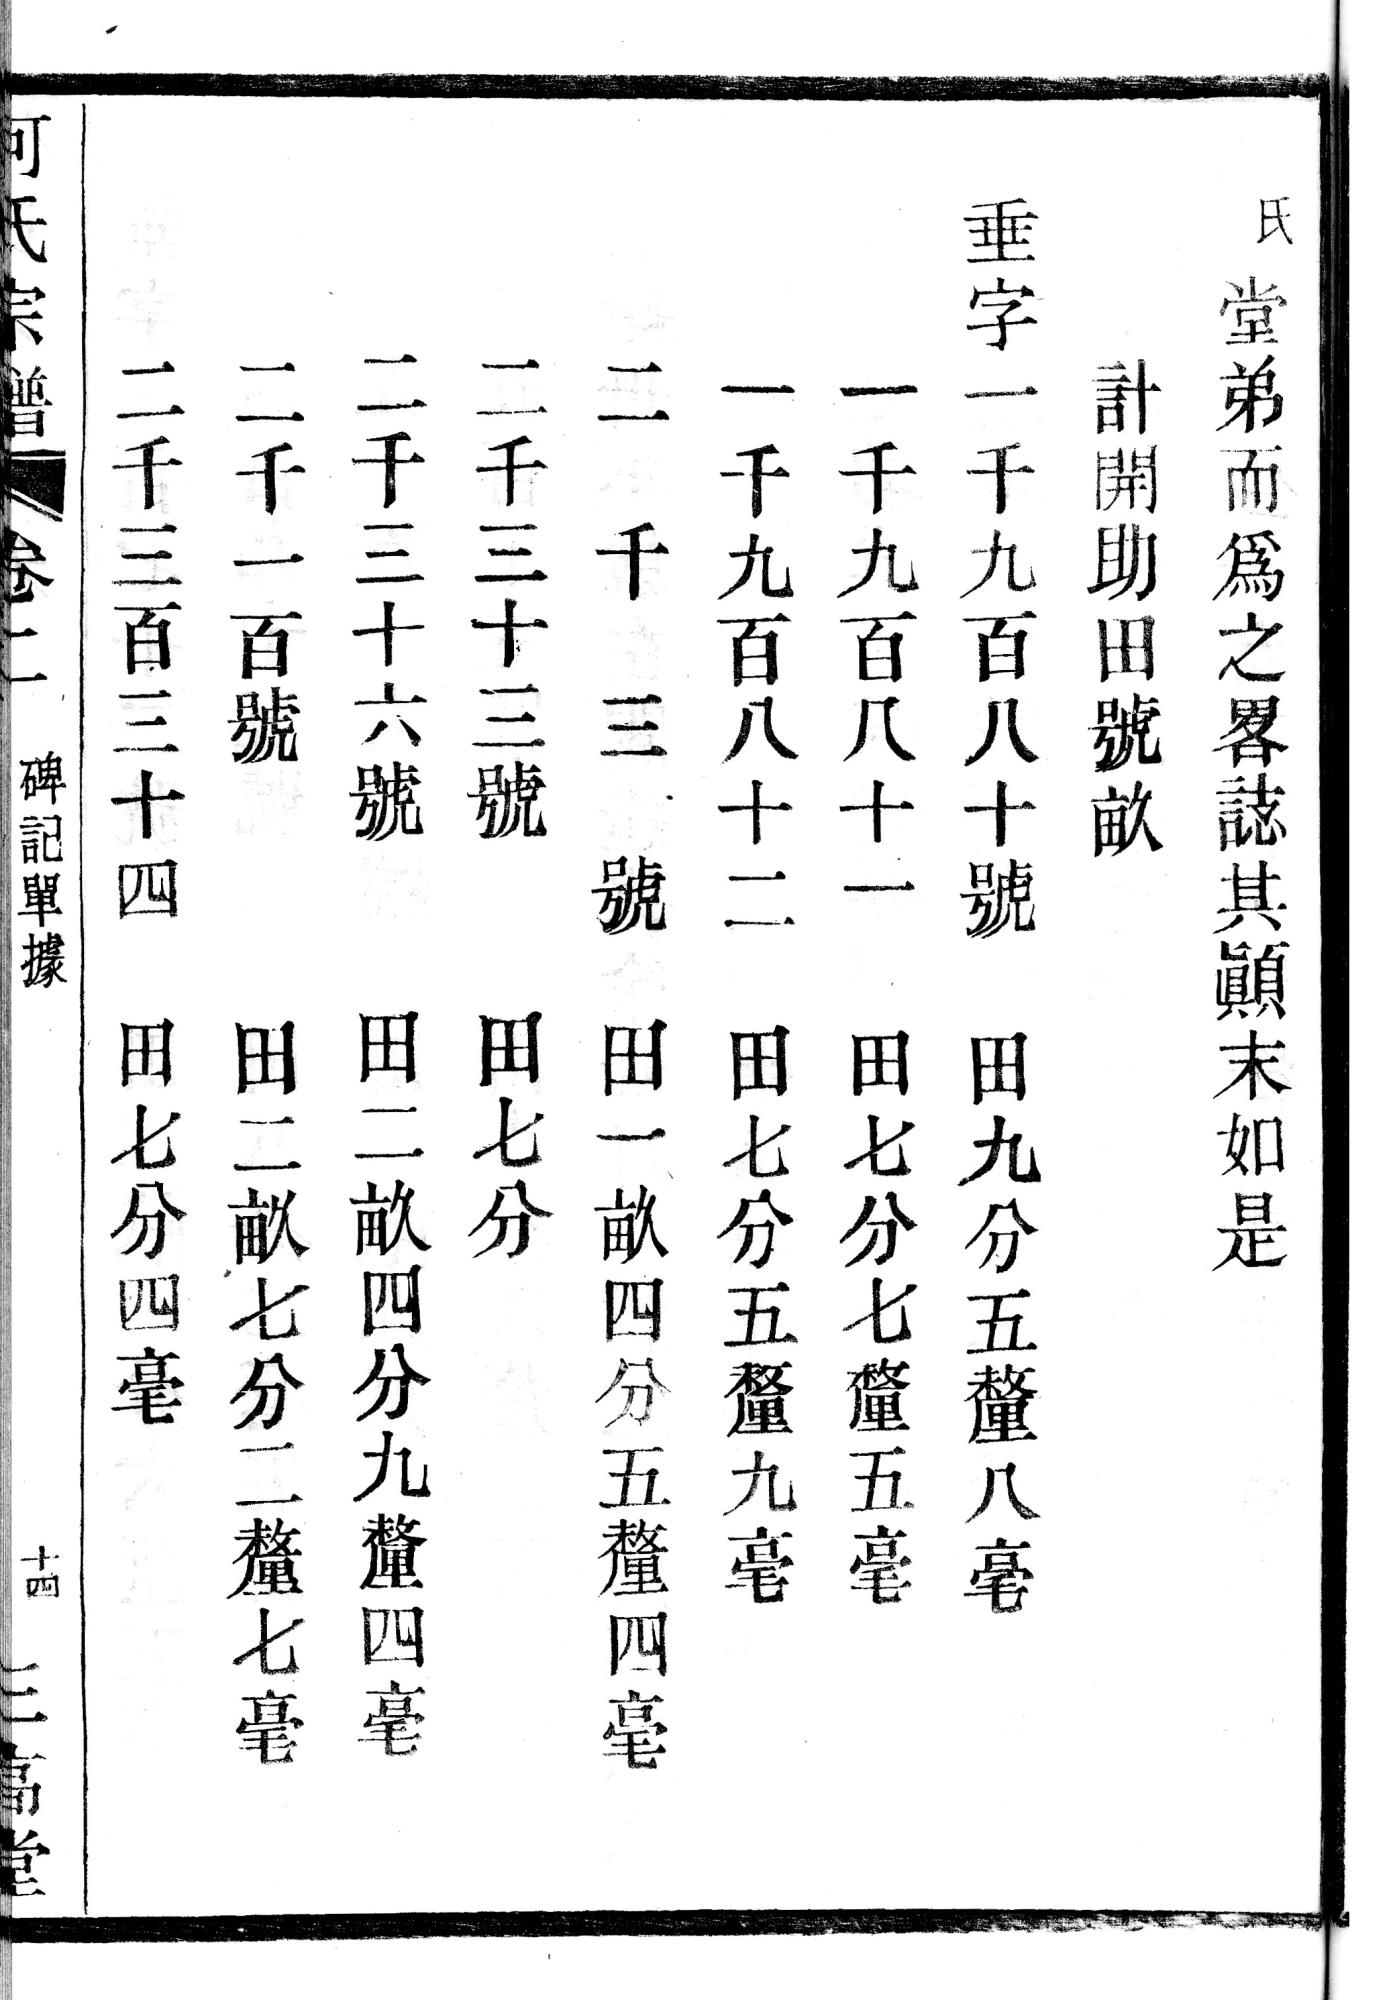 氏堂弟而爲之畧誌其顚末如是
計開助田號畝
垂字一千九百八十號 田九分五釐八毫
一千九百八十一 田七分七釐五毫
一千九百八十二 田七分五釐九毫
二千三號 田一畝四分五釐四毫
二千三十三號 田七分
二千三十六號 田二畝四分九釐四毫
二千一百號 田二畝七分二釐七毫
二千三百三十四 田七分四毫
何氏宗譜 卷二 碑記單據 十四 三高堂